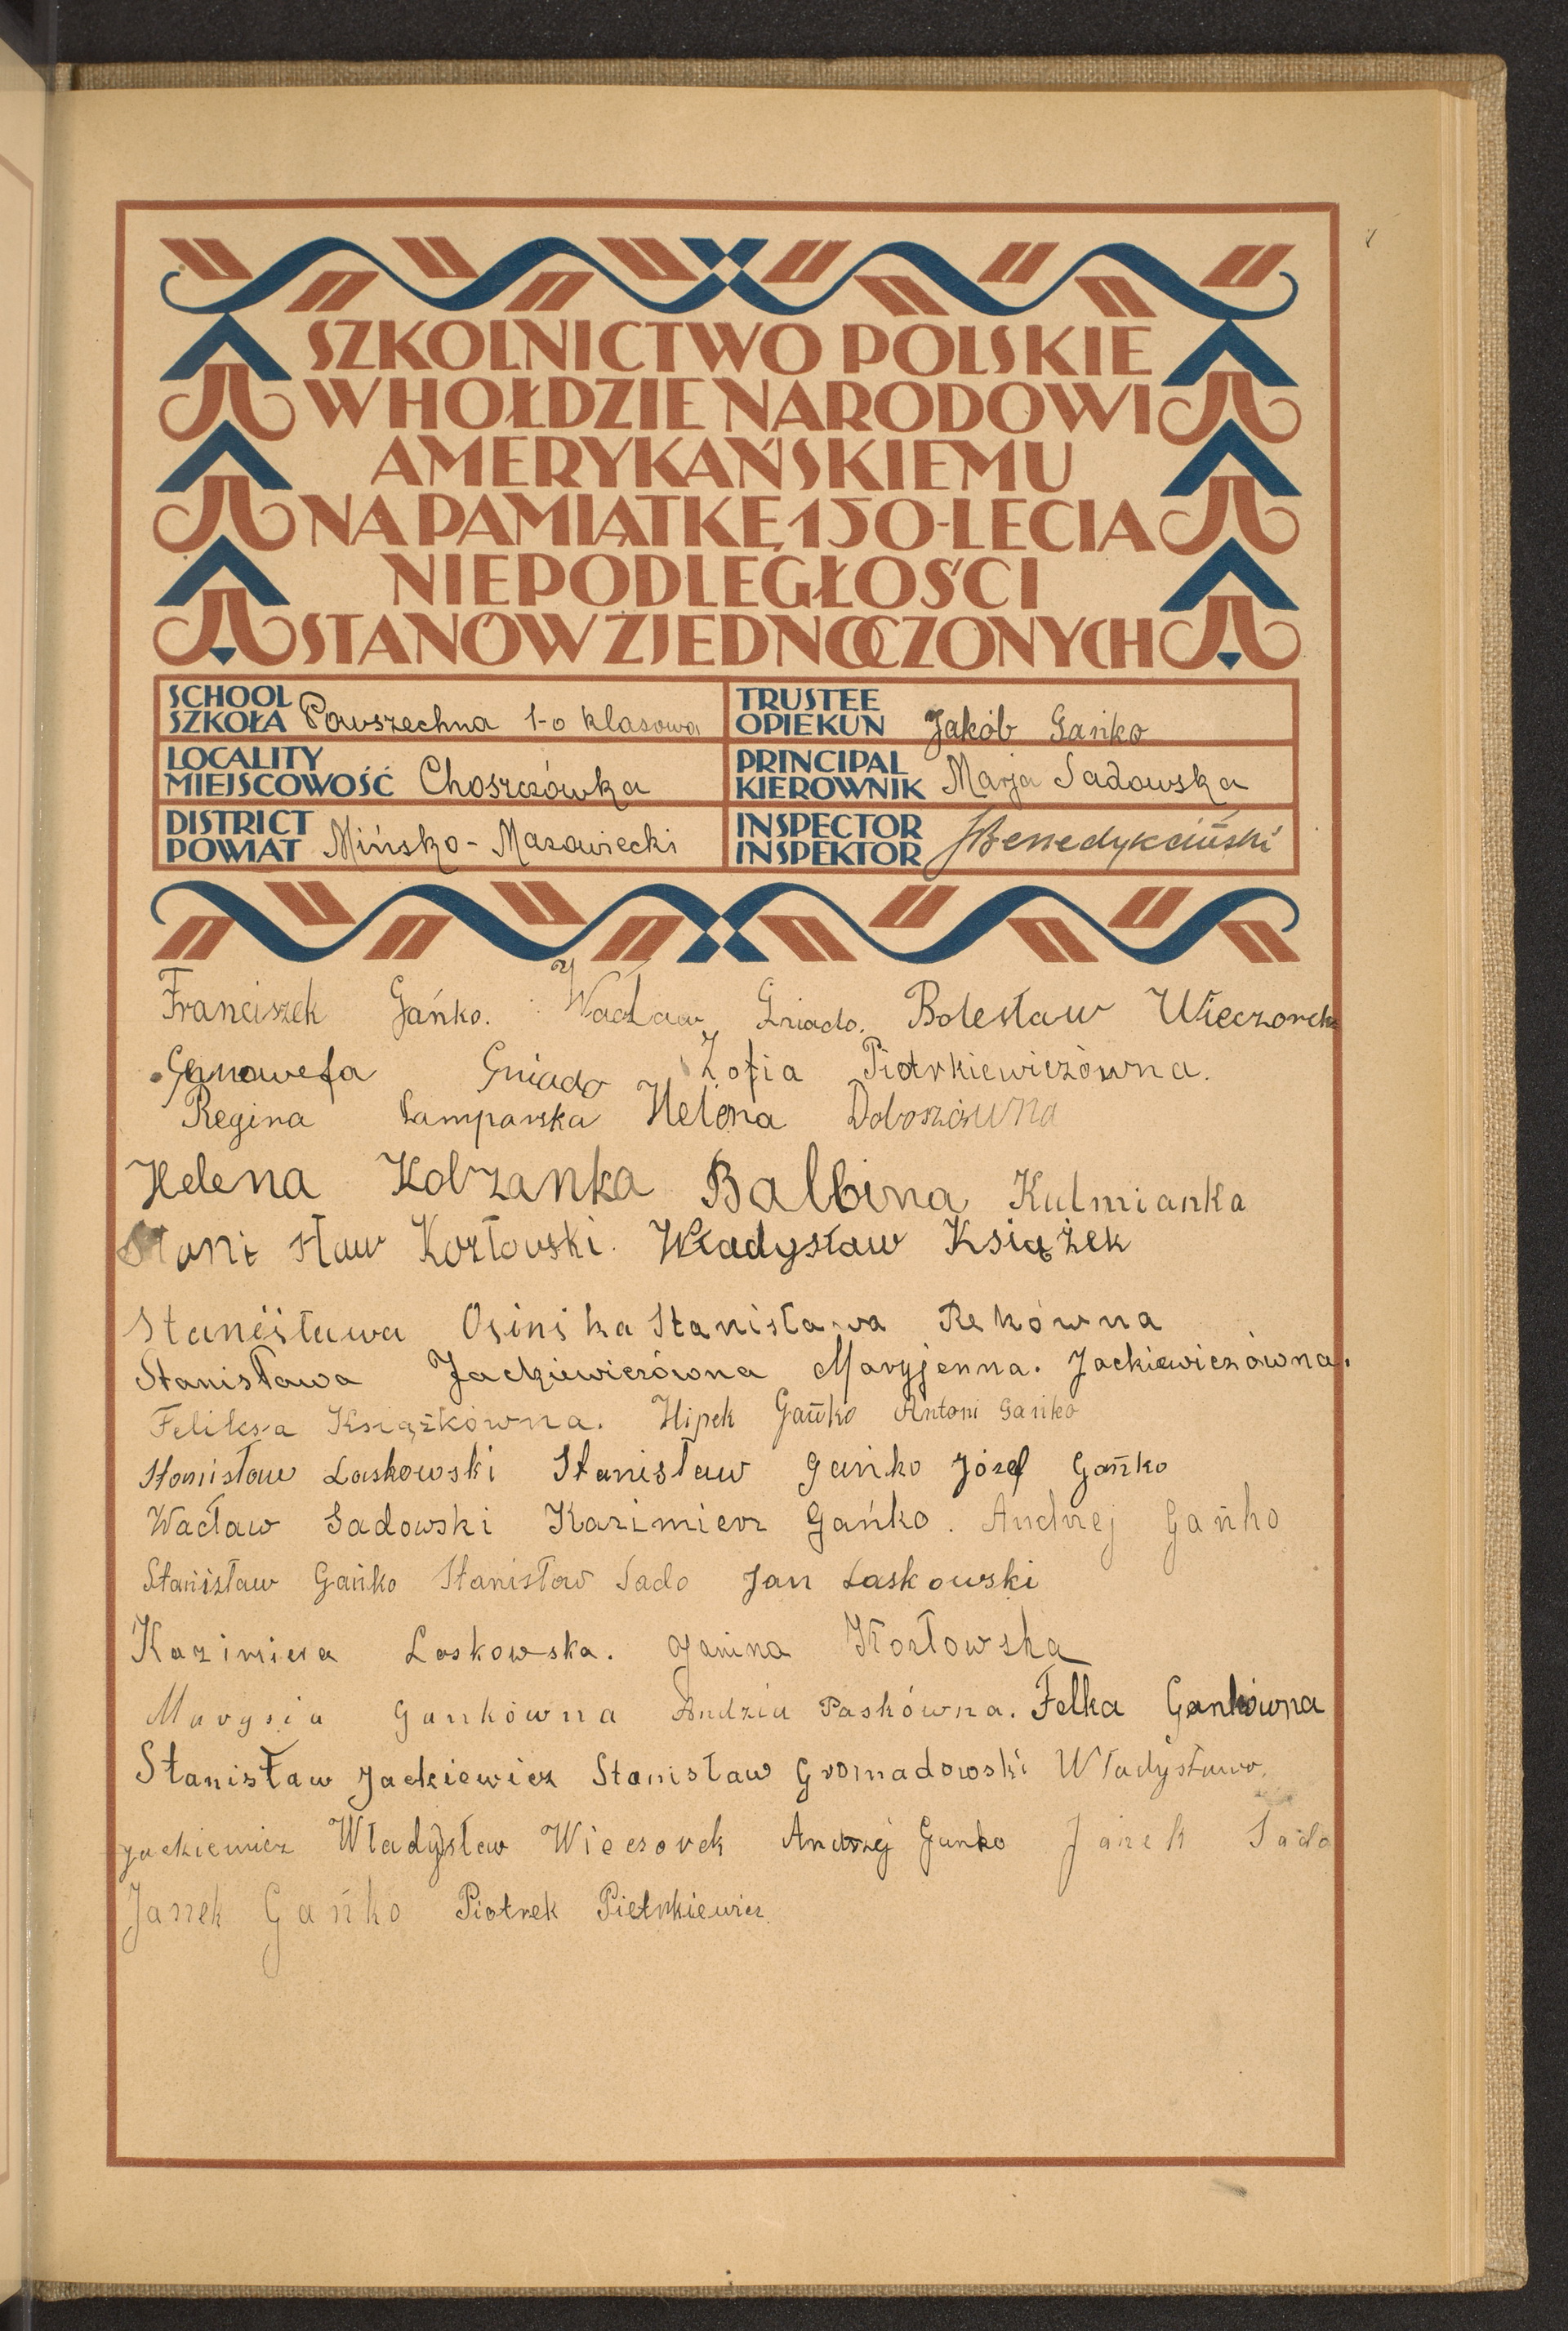 SZKOLNICTWO POLSKIE
W HOŁDZIE NARODOWI
AMERYKAŃSKIEMU
NA PAMIĄTKĘ 150-LECIA
NIEPODLEGŁOŚCI
STANÓW ZJEDNOCZONYCH
SCHOOL
SZKOŁA Powszechna 1-o klasowa
TRUSTEE
OPIEKUN Jakób Gańko
LOCALITY
MIEJSCOWOŚĆ Choszczówka
PRINCIPAL
KIEROWNIK Marja Sadowska
DISTRICT
POWIAT Mińsko-Mazowiecki
INSPECTOR
INSPEKTOR Benedykciński
Franciszek Gańko. Wacław Gniado. Bolesław Wieczorek
Genowefa Gniado Zofia Piotrkiewiczówna.
Regina Lamparska Helena Doboszówna
Helena Kobzanka Balbina Kulmianka
Stani sław Kozłowski. Władysław Książek
Stanisława Osinska Stanisława Rekówna
Stanisława Jackiewiczówna Maryjenna. Jackiewiczówna.
Feliksa Książkówna. Hipek Gańko Antoni Gańko
Stanisław Laskowski Stanisław Gańko Józef Gańko
Wacław Sadowski Kazimierz Gańko. Andrzej Gańko
Stanisław Gańko Stanisław Sado Jan Laskowski
Kazimiera Laskowska. Janina Kozłowska
Marysia Gankówna Andzia Paskówna. Felka Gankówna
Stanisław Jackiewicz Stanisław Gromadowski Władysław
Jackiewicz Władysław Wieczorek Andrzej Gańko Janek Sado
Janek Gańko Piotrek Pietrkiewicz